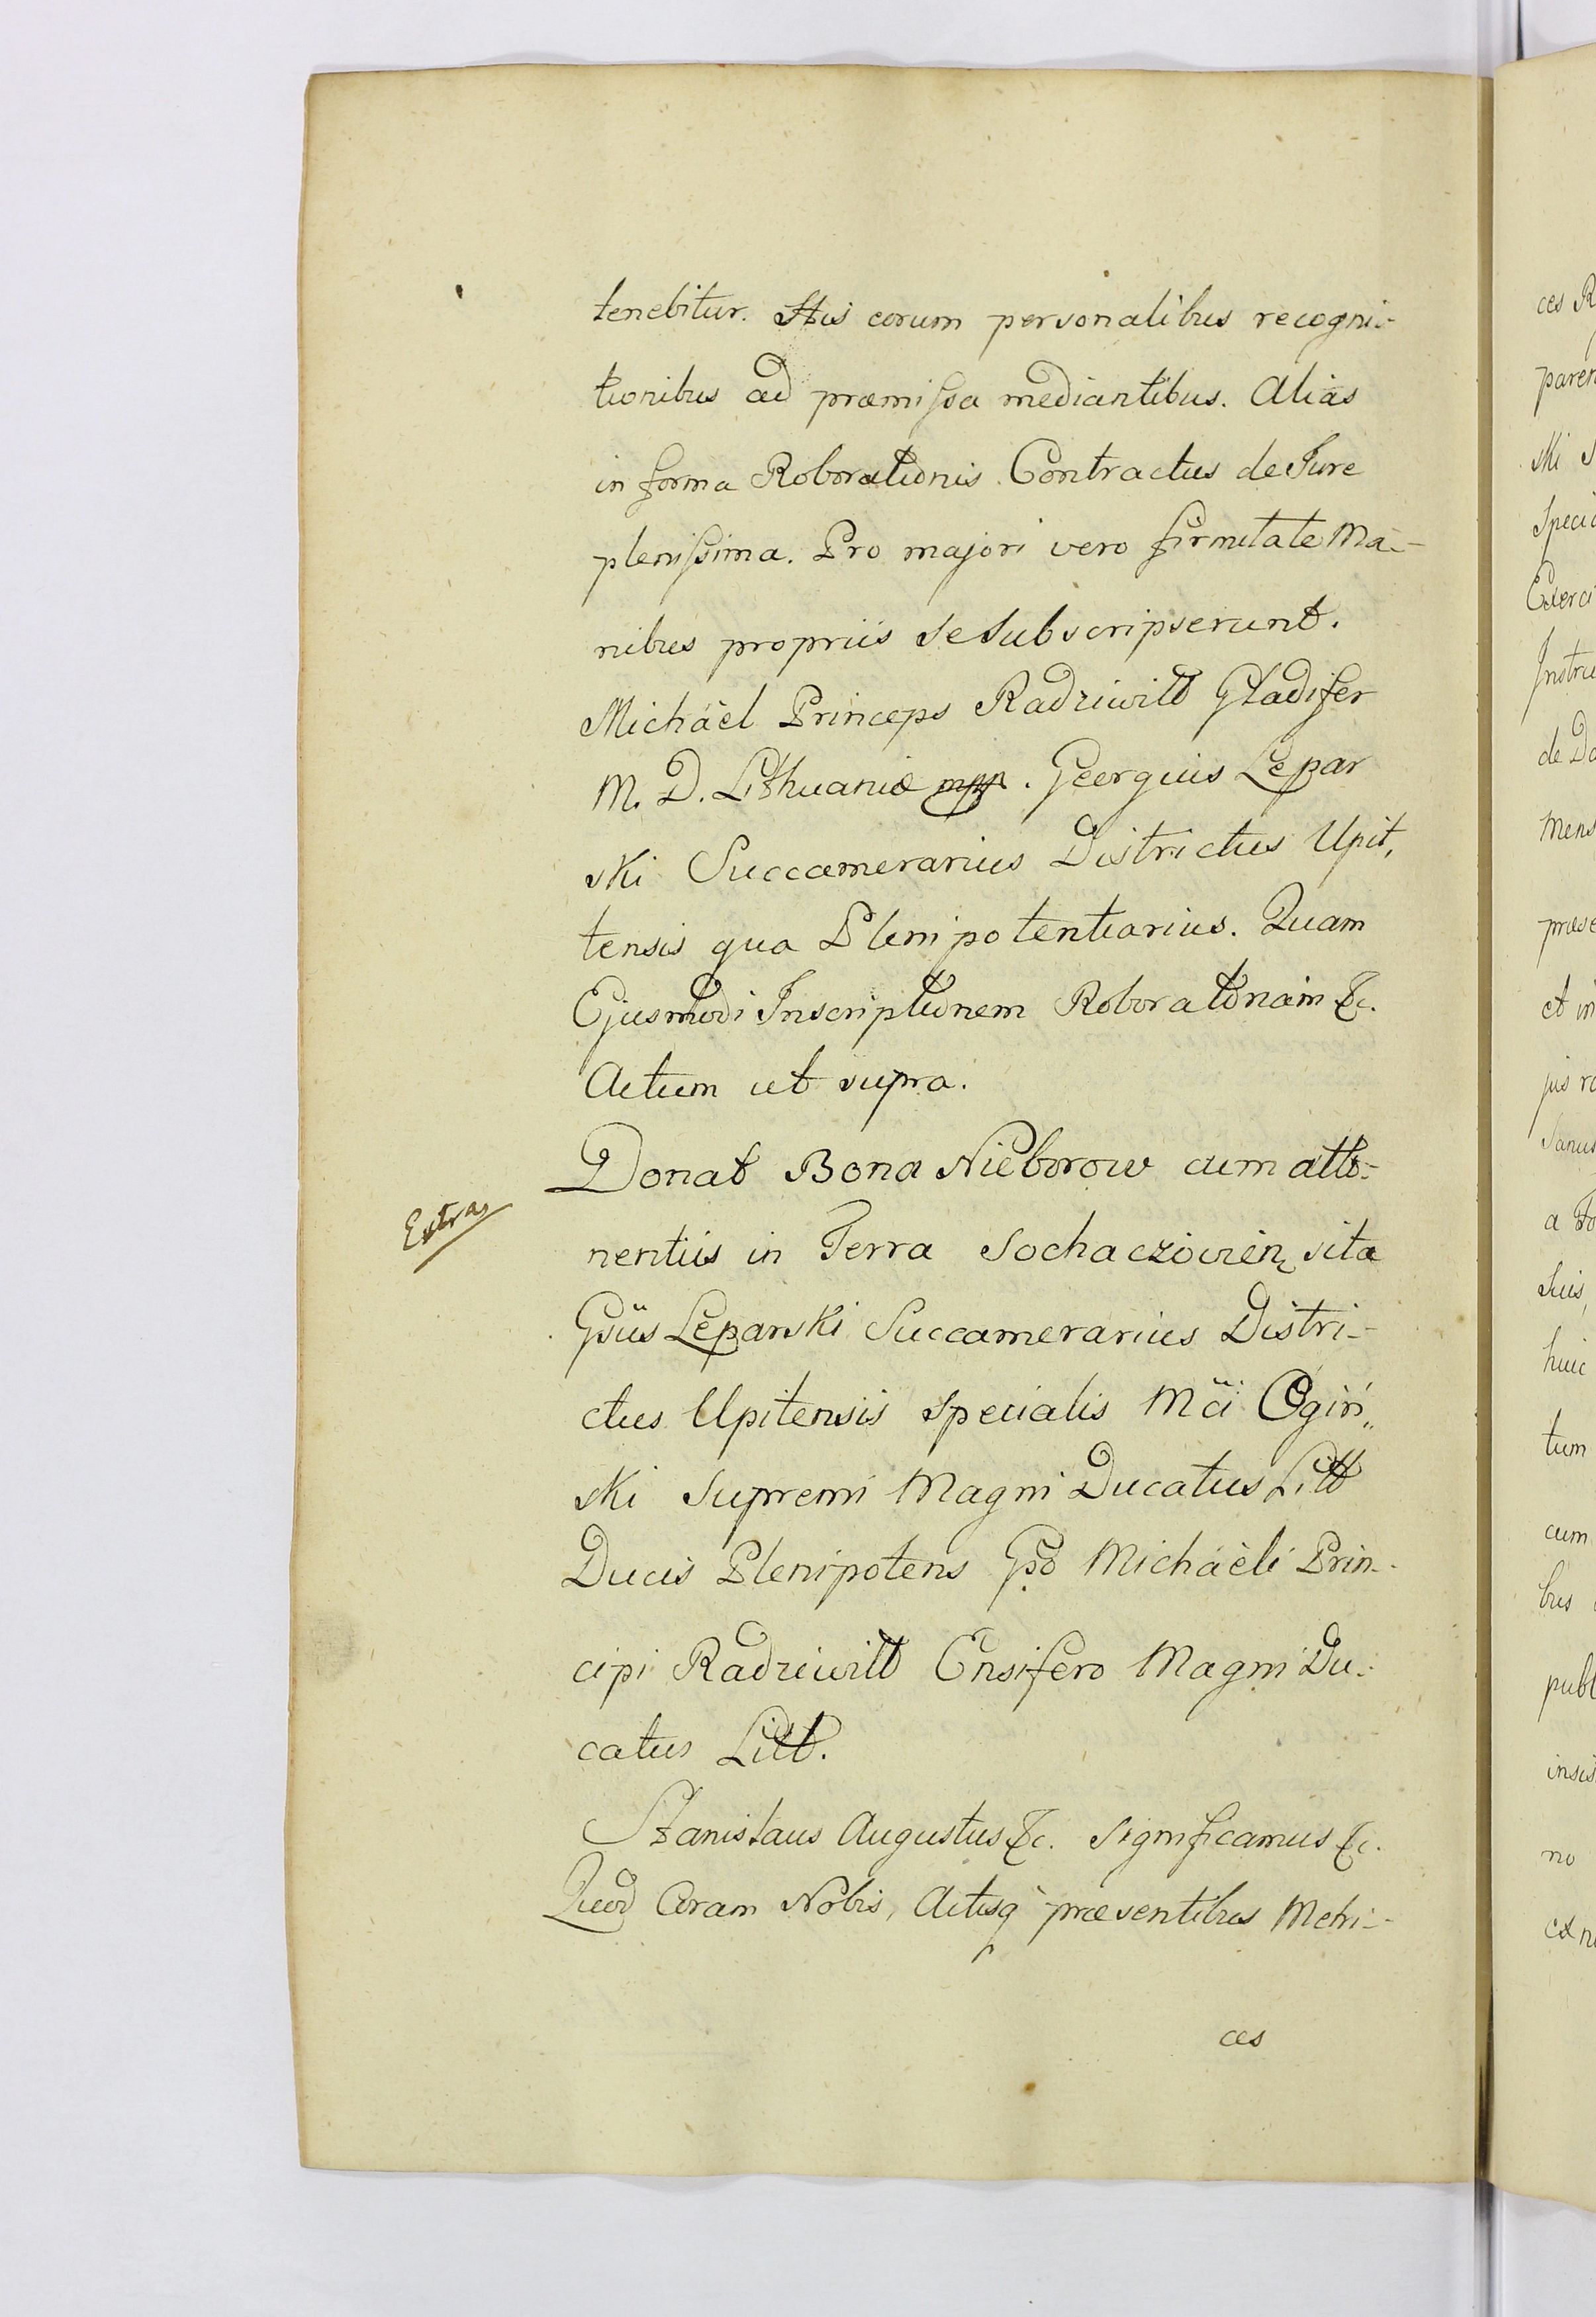 tenebitur. His eorum personalibus recogni-
tionibus ad præmissa mediantibus. Alias
in forma Roborationis Contractus de Jure
plenissima. Pro majori vero firmitate Ma-
nibus propriis se subscripserunt.
Michäel Princeps Radziwiłł Gladifer
M. D. Lithuaniæ mpp. Georgius Lepar
ski Succamerarius Districtus Upit,
tensis qua Plenipotentiarius. Quam
Ejusmodi Inscriptionem Roboratoriam &c.
Actum ut supra.
Donat Bona Nieborow cum atti-
Extras
nentiis in Terra Sochaczöwien, sita
Gsüs Leparski Succamerarius Distri-
ctus Upitensis specialis Mci Ogiń,,
ski Supremi Magni Ducatus Litt
Ducis Plenipotens Gso Michäeli Prin-
cipi Radziwiłł Ensifero Magni Du-
catus Litt.
Stanislaus Augustus &c. Significamus &c.
Quod Coram Nobis, Actisq præsentibus Metri-
ces
ces R
paren
ski S
Speci
Exerci
Instru
de Do
Mens
præse
et in
jus ro
Sanus
a
suis,
huic
tum
cum
bus
publ
insis
no